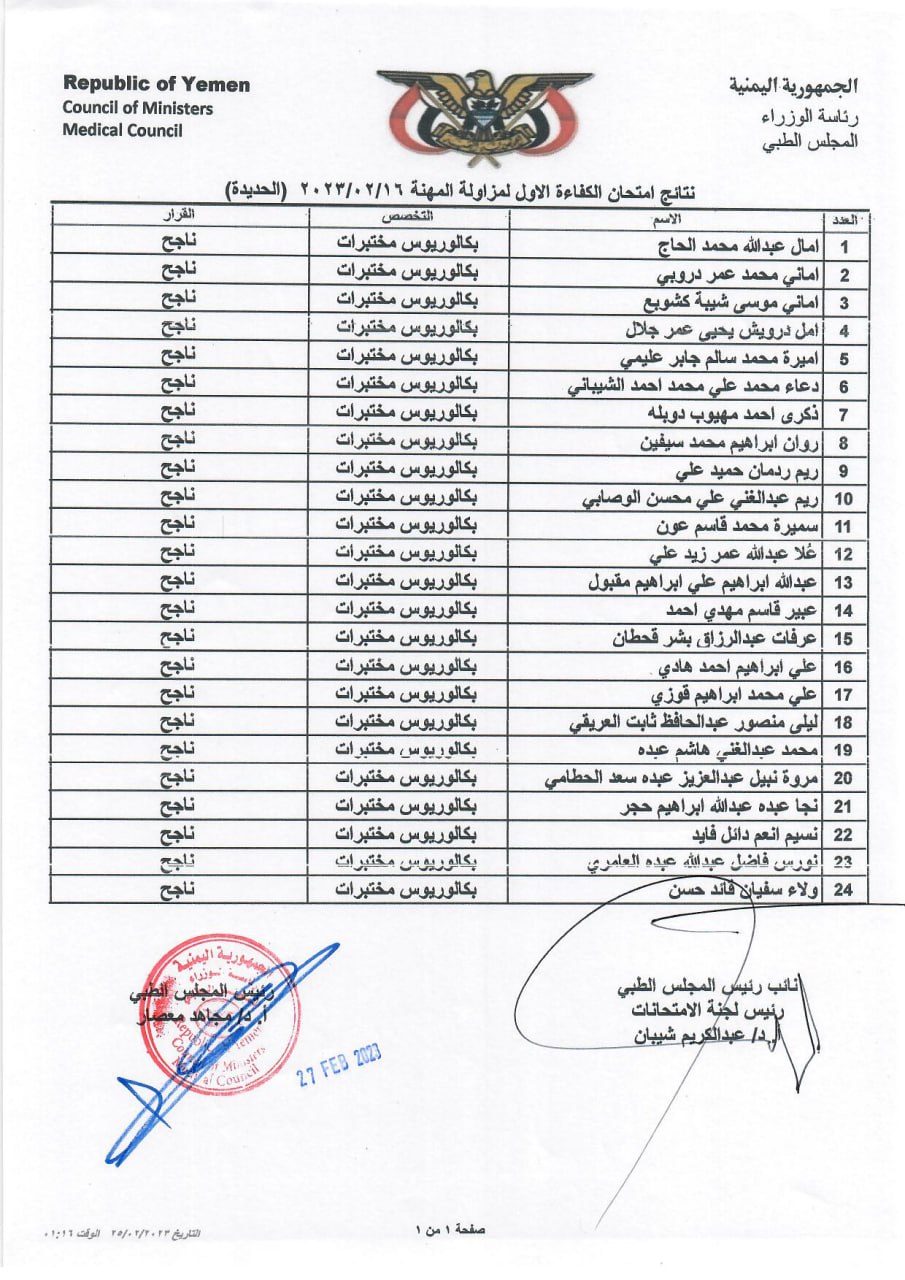 Republic of Yemen
Council of Ministers
Medical Council
الجمهورية اليمنية
رئاسة الوزراء
المجلس الطبي
نتائج امتحان الكفاءة الاول لمزاولة المهنة ٢٠٢٣/٠٢/١٦ (الحديدة)
العدد الاسم التخصص القرار
1 امال عبدالله محمد الحاج بكالوريوس مختبرات ناجح
2 اماني محمد عمر دروبي بكالوريوس مختبرات ناجح
3 اماني موسى شيبة كشويع بكالوريوس مختبرات ناجح
4 امل درويش يحيى عمر جلال بكالوريوس مختبرات ناجح
5 اميرة محمد سالم جابر عليمي بكالوريوس مختبرات ناجح
6 دعاء محمد علي محمد احمد الشيباني بكالوريوس مختبرات ناجح
7 ذكرى احمد مهيوب دوبله بكالوريوس مختبرات ناجح
8 روان ابراهيم محمد سيفين بكالوريوس مختبرات ناجح
9 ريم ردمان حميد علي بكالوريوس مختبرات ناجح
10 ريم عبدالغني علي محسن الوصابي بكالوريوس مختبرات ناجح
11 سميرة محمد قاسم عون بكالوريوس مختبرات ناجح
12 عُلا عبدالله عمر زيد علي بكالوريوس مختبرات ناجح
13 عبدالله ابراهيم علي ابراهيم مقبول بكالوريوس مختبرات ناجح
14 عبير قاسم مهدي احمد بكالوريوس مختبرات ناجح
15 عرفات عبدالرزاق بشر قحطان بكالوريوس مختبرات ناجح
16 علي ابراهيم احمد هادي بكالوريوس مختبرات ناجح
17 علي محمد ابراهيم قوزي بكالوريوس مختبرات ناجح
18 ليلى منصور عبدالحافظ ثابت العريقي بكالوريوس مختبرات ناجح
19 محمد عبدالغني هاشم عبده بكالوريوس مختبرات ناجح
20 مروة نبيل عبدالعزيز عبده سعد الحطامي بكالوريوس مختبرات ناجح
21 نجا عبده عبدالله ابراهيم حجر بكالوريوس مختبرات ناجح
22 نسيم انعم دائل فايد بكالوريوس مختبرات ناجح
23 نورس فاضل عبدالله عبده العامري بكالوريوس مختبرات ناجح
24 ولاء سفيان قائد حسن بكالوريوس مختبرات ناجح
نائب رئيس المجلس الطبي
رئيس لجنة الامتحانات
أ.د/ عبدالكريم شيبان
رئيس المجلس الطبي
أ.د/ مجاهد معصار
الجمهورية اليمنية
Republic of Yemen
Council of Ministers
Medical Council
27 FEB 2023
صفحة ١ من ١
التاريخ ٢٥/٠٢/٢٠٢٣ الوقت ٠١:١٦